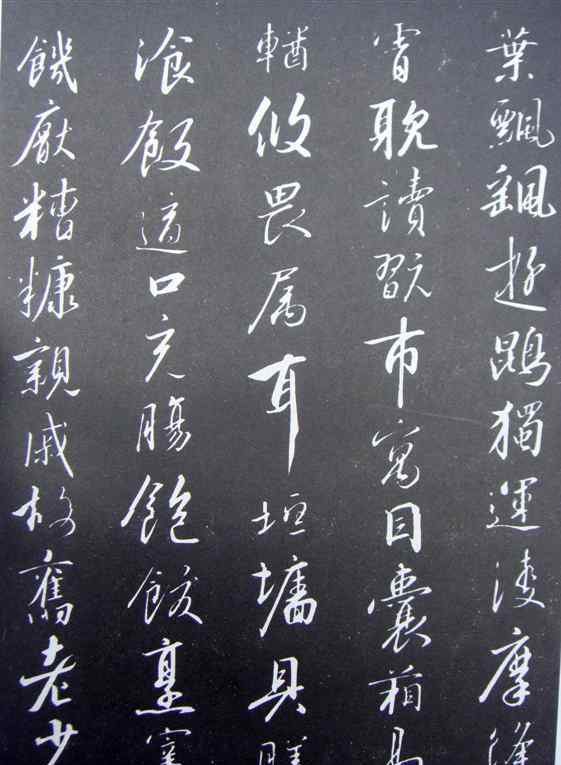 葉飄颻遊鵾獨運凌摩絳
宵耽讀翫市寓目囊箱易
輶攸畏属耳垣墻具膳
湌飯適口充腸飽飫烹宰
饑厭糟糠親戚故舊老少